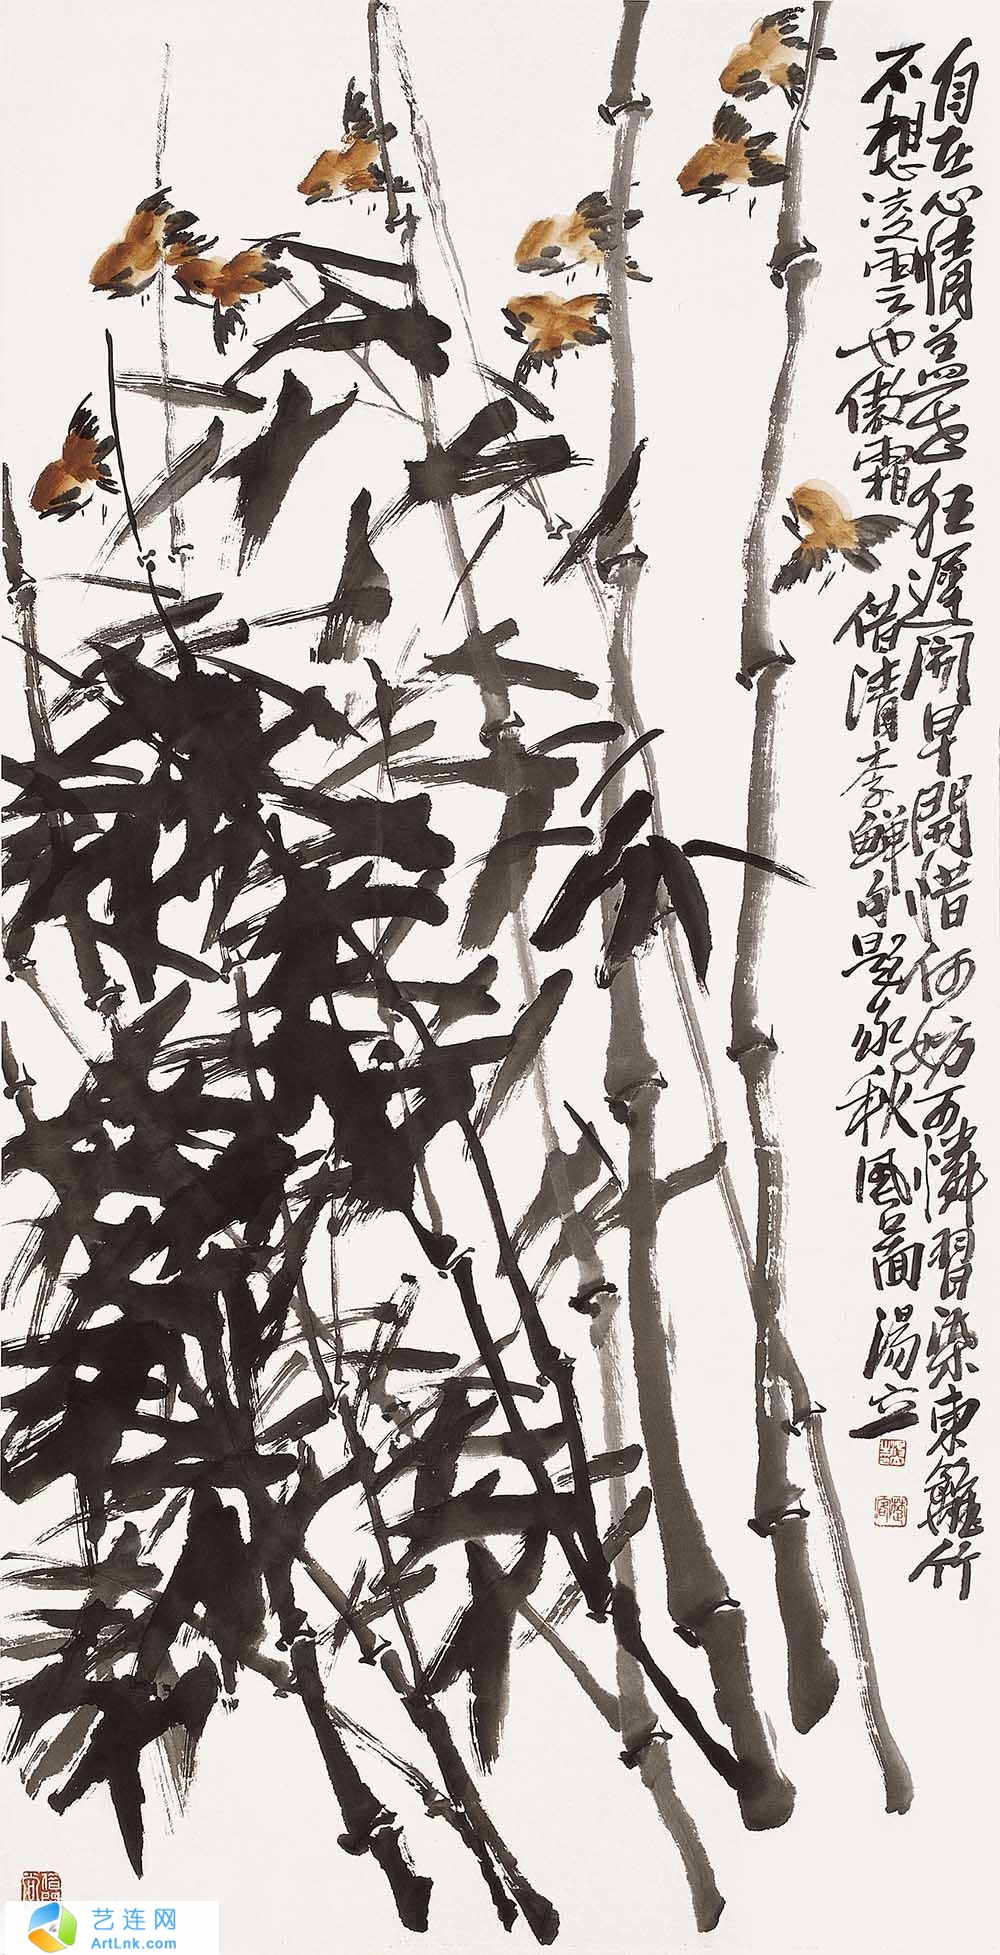 自在心情盖世狂遲開早開惜何妨可憐習染東籬竹
不想凌雲也傲霜 借清李鱓句題 秋風圖 湯立
艺连网
ArtLnk.com